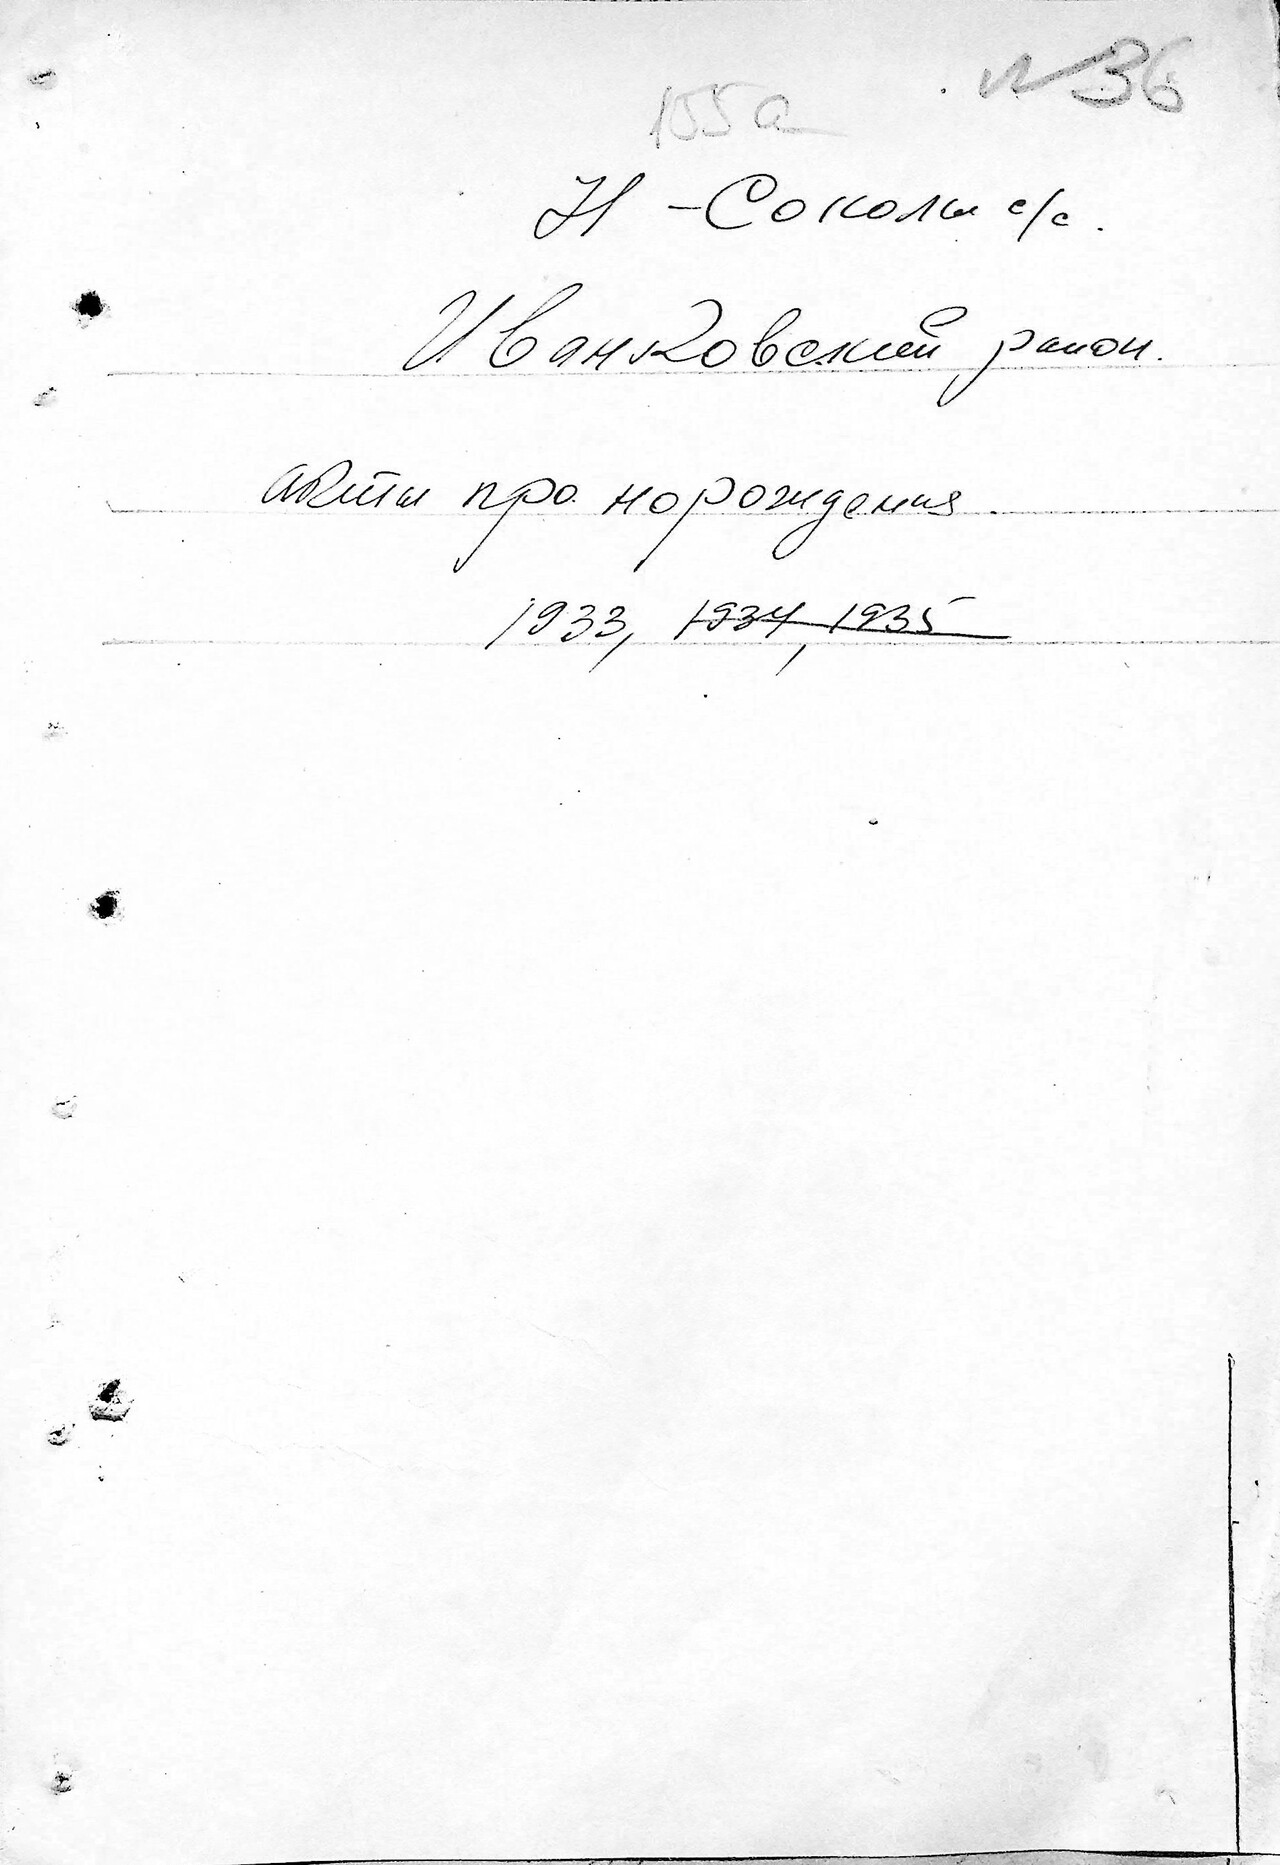 №36
155а
Н-Соколы с/с.
Иванковский район.
акты про нарождения.
1933, 1934, 1935